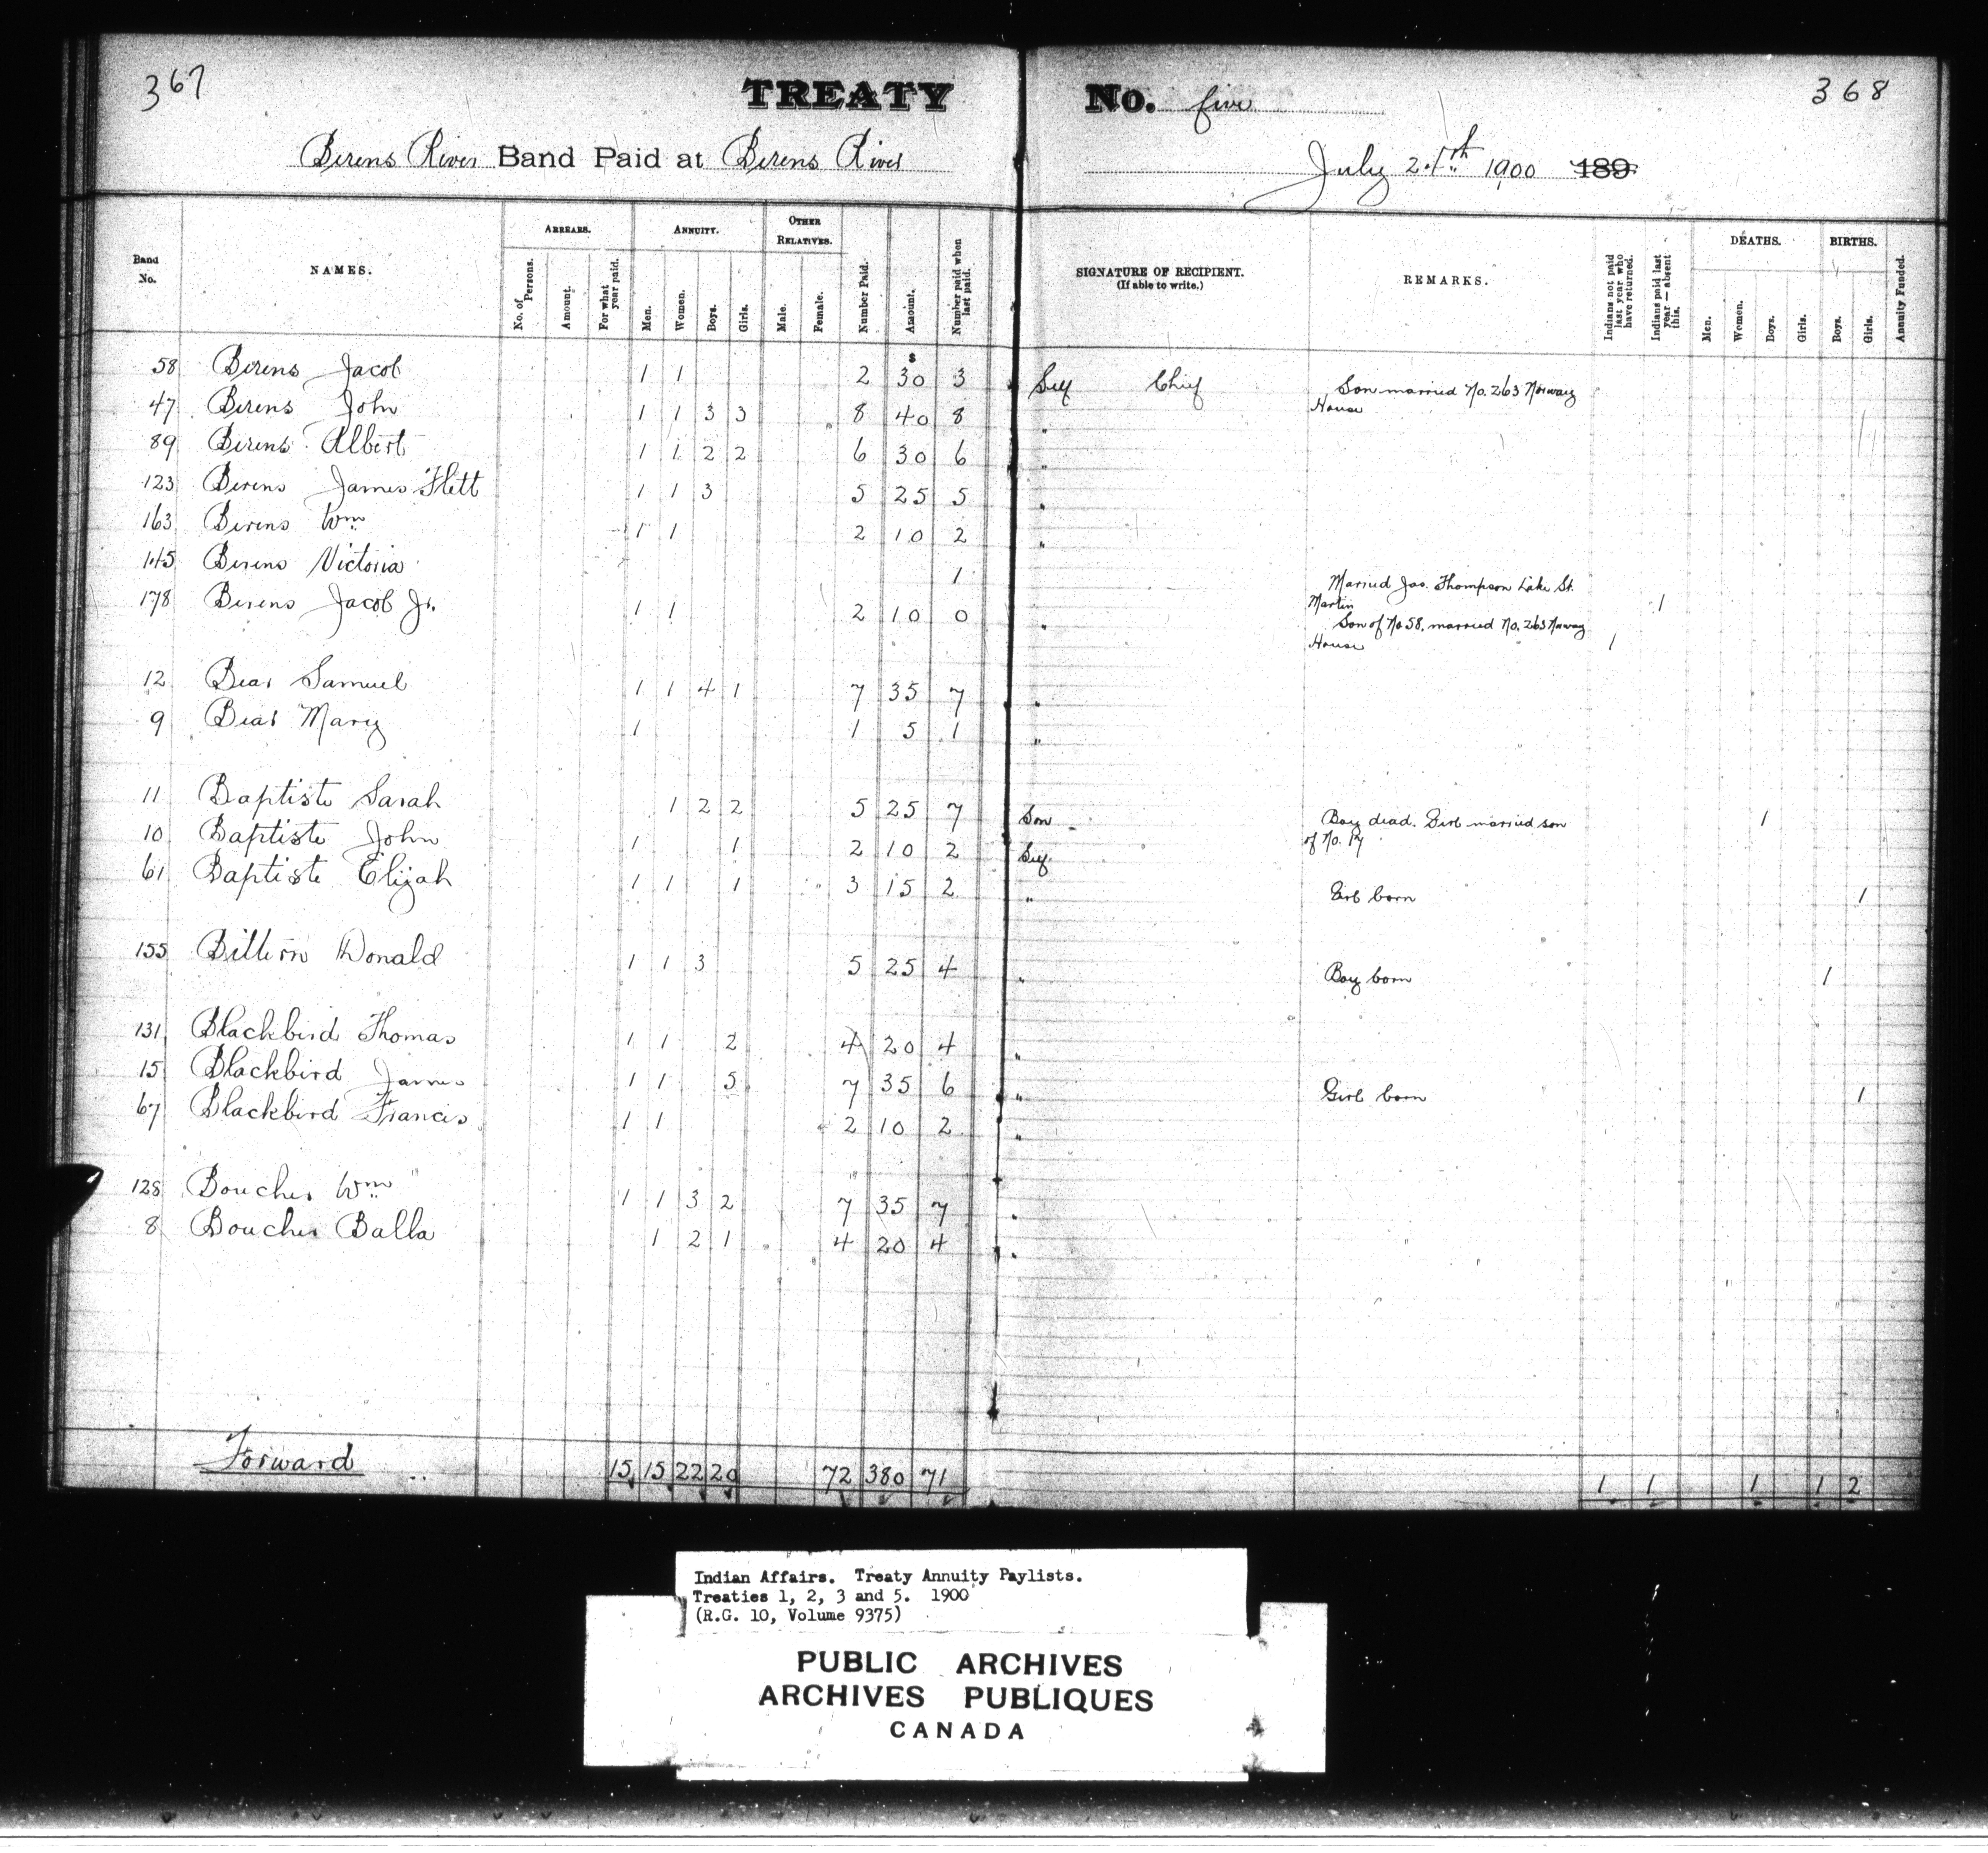 367
TREATY No. five
368
Berens River Band Paid at Berens River
July 1900 189
Band No.
NAMES.
ARREARS.
No. of Persons.
Amount.
For what year paid.
ANNUITY.
Men.
Women.
Boys.
Girls.
OTHER RELATIVES.
Male.
Female.
Number Paid.
Amount.
Number paid when last paid.
SIGNATURE OF RECIPIENT.
(If able to write.)
REMARKS.
Indians not paid last year who have returned.
Indians paid last year — absent this.
DEATHS.
Men.
Women.
Boys.
Girls.
BIRTHS.
Boys.
Girls.
Annuity Funded.
$
58 Berens Jacob 1 1 2 30 3 Self Chief Son married No. 263 Norway House
47 Berens John 1 1 3 3 8 40 8 "
89 Berens Albert 1 1 2 2 6 30 6 "
123 Berens James Flett 1 1 3 5 25 5 "
163 Berens Wm 1 1 2 10 2 "
145 Berens Victoria 1 Married Jas. Thompson Lake St. Martin 1
178 Berens Jacob Jr. 1 1 2 10 0 " Son of No 58. married No. 263 Norway House 1
12 Bear Samuel 1 1 4 1 7 35 7 "
9 Bear Mary 1 1 5 1 "
11 Baptiste Sarah 1 2 2 5 25 7 Son Boy dead. Girl married son of No. 17 1
10 Baptiste John 1 1 2 10 2 Self
61 Baptiste Elijah 1 1 1 3 15 2 " Girl born 1
155 Bittern Donald 1 1 3 5 25 4 " Boy born 1
131 Blackbird Thomas 1 1 2 4 20 4 "
15 Blackbird James 1 1 5 7 35 6 " Girl born 1
67 Blackbird Francis 1 1 2 10 2 "
128 Boucher Wm 1 1 3 2 7 35 7 "
8 Boucher Balla 1 2 1 4 20 4 "
Forward 15 15 22 20 72 380 71 1 1 1 1 2
Indian Affairs. Treaty Annuity Paylists.
Treaties 1, 2, 3 and 5. 1900
(R.G. 10, Volume 9375)
PUBLIC ARCHIVES
ARCHIVES PUBLIQUES
CANADA